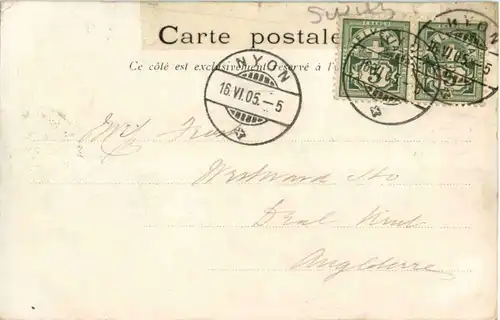 Swiss
Carte postale
Ce côté est exclusivement réservé à l'
NYON
16.VI.05.-5
NYON
16.VI.05
HELVETIA
5
5
Westward Ho
Deal Kent
Angleterre